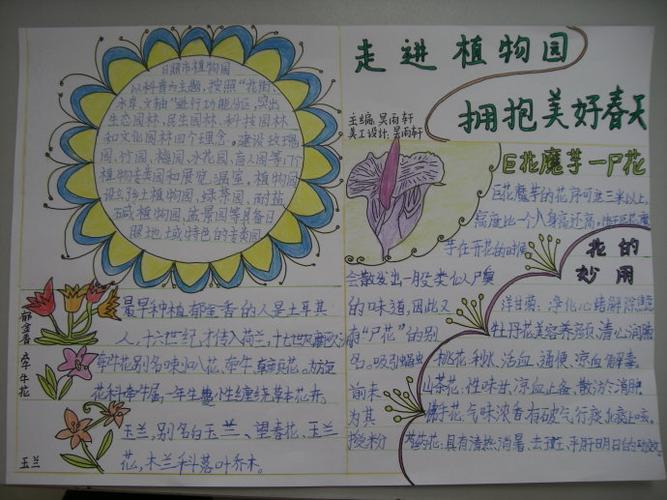 走进植物园
拥抱美好春天
主编:吴雨轩
美工设计:吴雨轩
日照市植物园
以科普为主题,按照“花街、
水草、文轴”进行功能分区,突出
生态园林、民生园林、科技园林
和文化园林四个理念。建设玫瑰
园、竹园、梅园、水花园、盲人园等17个
植物专类园和展览温室。植物园
设乡土植物园、绿茶园、耐盐
碱植物园、盆景园等具备日
照地域特色的专类园
巨花魔芋—尸花
巨花魔芋的花序可达三米以上,
高度比一个人身高还高。
芋在开花的时候,
会散发出一股类似人尸臭
的味道,因此又
有“尸花”的别
名。吸引蝇虫
前来
为其
授粉
花的
妙用
洋甘菊:净化心绪解除
牡丹花美容养颜,清心润肺
桃花:利水、活血、通便、
山茶花:性味甘、凉血止血、散瘀消肿
佛手花:气味浓香有破气行痰
具有清热、消暑、平肝明目的
郁金香
最早种植郁金香的人是土耳其
人,十六世纪,才传入荷兰,
牵牛花
牵牛花别名喇叭花、牵牛、朝颜花。为旋
花科牵牛属,一年生蔓性缠绕草本花卉。
玉兰
玉兰,别名白玉兰、望春花、玉兰
花,木兰科落叶乔木。